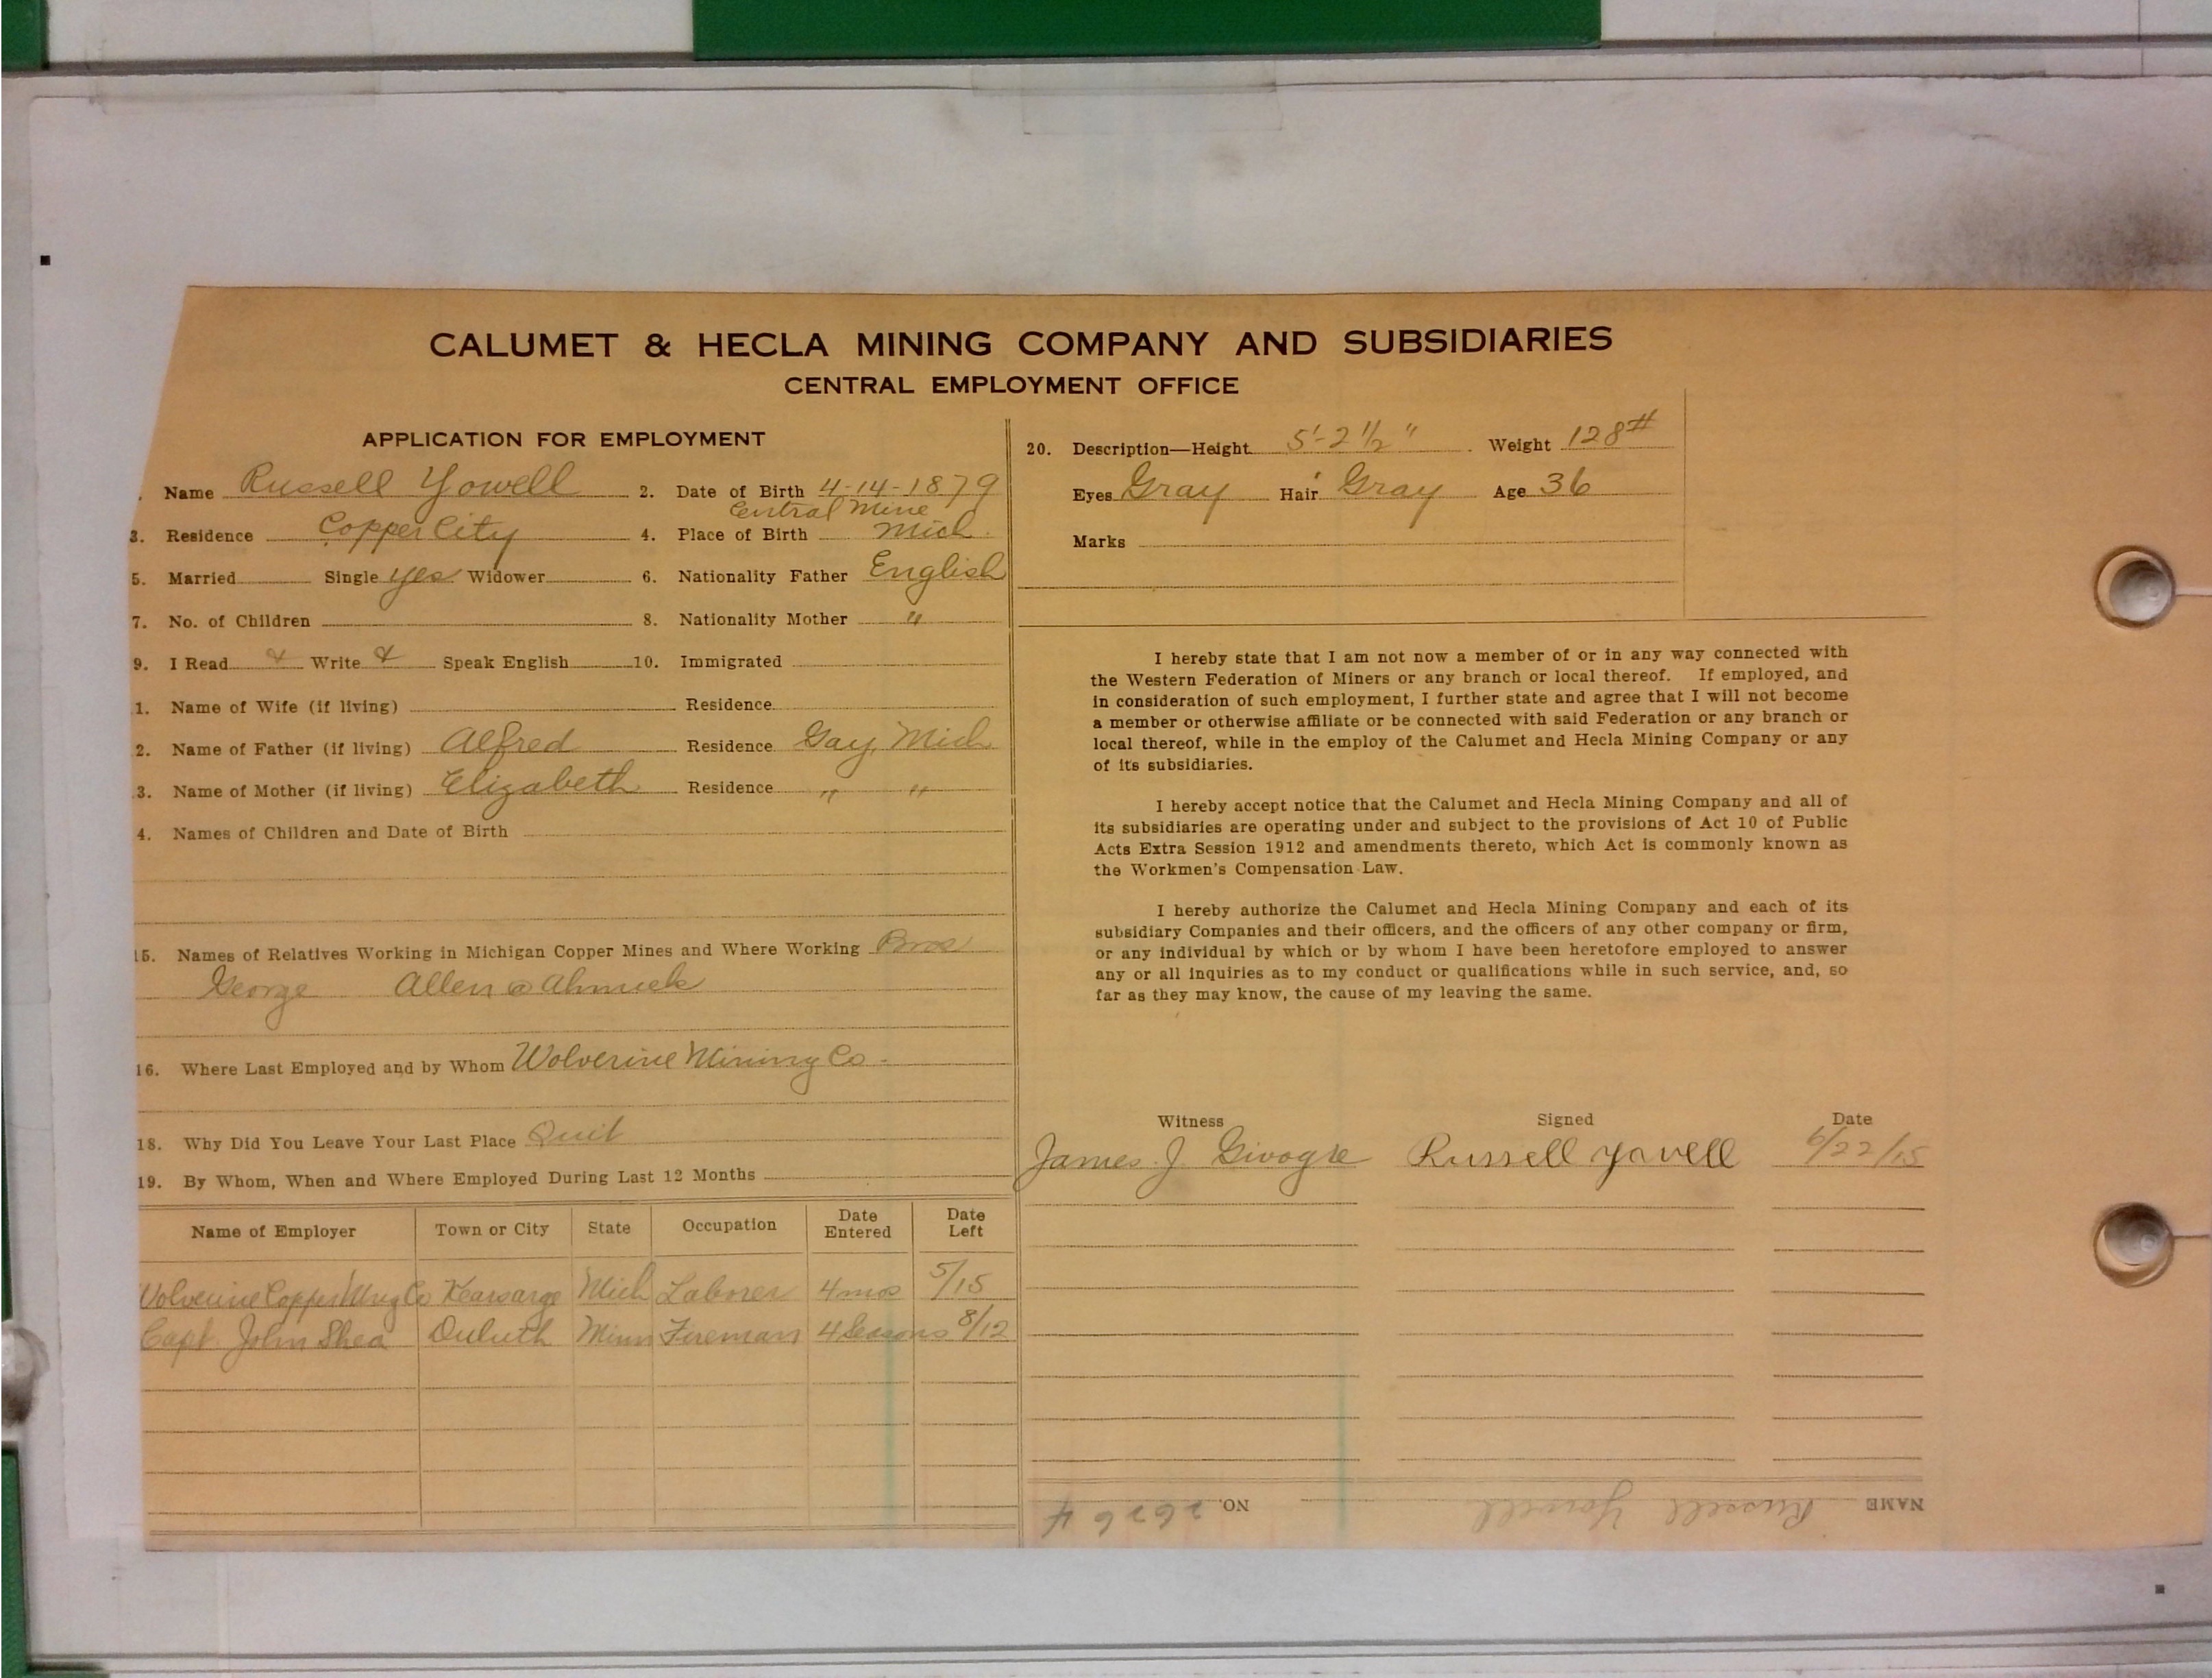 CALUMET & HECLA MINING COMPANY AND SUBSIDIARIES
CENTRAL EMPLOYMENT OFFICE
APPLICATION FOR EMPLOYMENT
. Name Russell Yowell 2. Date of Birth 4-14-1879
Central Mine
3. Residence Copper City 4. Place of Birth Mich.
5. Married Single yes Widower 6. Nationality Father English
7. No. of Children 8. Nationality Mother "
9. I Read & Write & Speak English 10. Immigrated
1. Name of Wife (if living) Residence
2. Name of Father (if living) Alfred Residence Gay, Mich
3. Name of Mother (if living) Elizabeth Residence " "
4. Names of Children and Date of Birth
15. Names of Relatives Working in Michigan Copper Mines and Where Working Bros
George Allen @ Ahmeek
16. Where Last Employed and by Whom Wolverine Mining Co.
18. Why Did You Leave Your Last Place Quit
19. By Whom, When and Where Employed During Last 12 Months
Name of Employer Town or City State Occupation Date Entered Date Left
Wolverine Copper Mng Co Kearsarge Mich Laborer 4 mos 5/15
Capt. John Shea Duluth Minn Fireman 4 Seasons 8/12
20. Description—Height 5'-2 1/2" Weight 128#
Eyes Gray Hair Gray Age 36
Marks
I hereby state that I am not now a member of or in any way connected with
the Western Federation of Miners or any branch or local thereof. If employed, and
in consideration of such employment, I further state and agree that I will not become
a member or otherwise affiliate or be connected with said Federation or any branch or
local thereof, while in the employ of the Calumet and Hecla Mining Company or any
of its subsidiaries.
I hereby accept notice that the Calumet and Hecla Mining Company and all of
its subsidiaries are operating under and subject to the provisions of Act 10 of Public
Acts Extra Session 1912 and amendments thereto, which Act is commonly known as
the Workmen's Compensation Law.
I hereby authorize the Calumet and Hecla Mining Company and each of its
subsidiary Companies and their officers, and the officers of any other company or firm,
or any individual by which or by whom I have been heretofore employed to answer
any or all inquiries as to my conduct or qualifications while in such service, and, so
far as they may know, the cause of my leaving the same.
Witness Signed Date
James J. Russell Yowell 6/22/15
NAME Russell Yowell NO. 26264